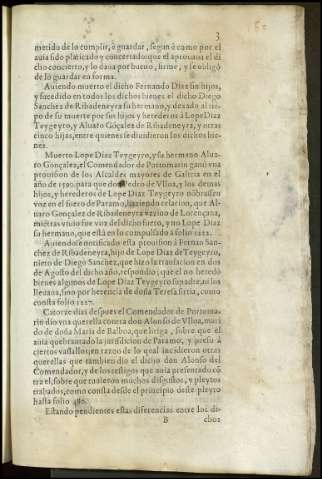 3
metido de lo cumplir, ò guardar, segun ò como por el
auia sido platicado y concertado: que el aprouaua el di
cho concierto, y lo daua por bueno, firme, y se obligò
de lo guardar en forma.
Auiendo muerto el dicho Fernando Diaz sin hijos,
y sucedido en todos los dichos bienes el dicho Diego
Sanchez de Ribadeneyra su hermano, y dexado al tiem
po de su muerte por sus hijos y herederos à Lope Diaz
Teygeyro, y Aluaro Gõçalez de Ribadeneyra, y otras
cinco hijas, entre quienes se diuidieron los dichos bie-
nes.
Muerto Lope Diaz Teygeyro, y su hermano Alua-
ro Gonçalez, el Comendador de Portomarin ganò vna
prouision de los Alcaldes mayores de Galicia en el
año de 1530. para que don Pedro de Vlloa, y los demas
hijos, y herederos de Lope Diaz Teygeyro nõbrassen
voz en el fuero de Paramo, haziendo relacion, que Al-
uaro Gonçalez de Ribadeneyra vezino de Lorençana,
miẽtras viuio fue voz del dicho fuero, y no Lope Diaz
su hermano, que està en lo compulsado à folio
Auiendose notificado esta prouision à Fernan San-
chez de Ribadeneyra, hijo de Lope Diaz de Teygeyro,
nieto de Diego Sanchez, que hizo la translacion en dos
de Agosto del dicho año, respondio, que el no heredò
bienes algunos de Lope Diaz Teygeyro su padre, ni los
lleuaua, sino por herencia de doña Teresa su tia, como
consta folio
Catorze dias despues el Comendador de Portoma-
rin dio vna querella contra don Alonso de Vlloa, mari
do de doña Maria de Balboa, que litiga, sobre que el
auia quebrantado la jurisdicion de Paramo, y preso à
ciertos vassallos, en razon de lo qual incidieron otras
querellas que tambien dio el dicho don Alonso del
Comendador, y de los testigos que auia presentado cõ
tra el, sobre que tuuieron muchos disgustos, y pleytos
trabados, como consta desde el principio deste pleyto
hasta folio
Estando pendientes estas diferencias entre los di-
B
chos